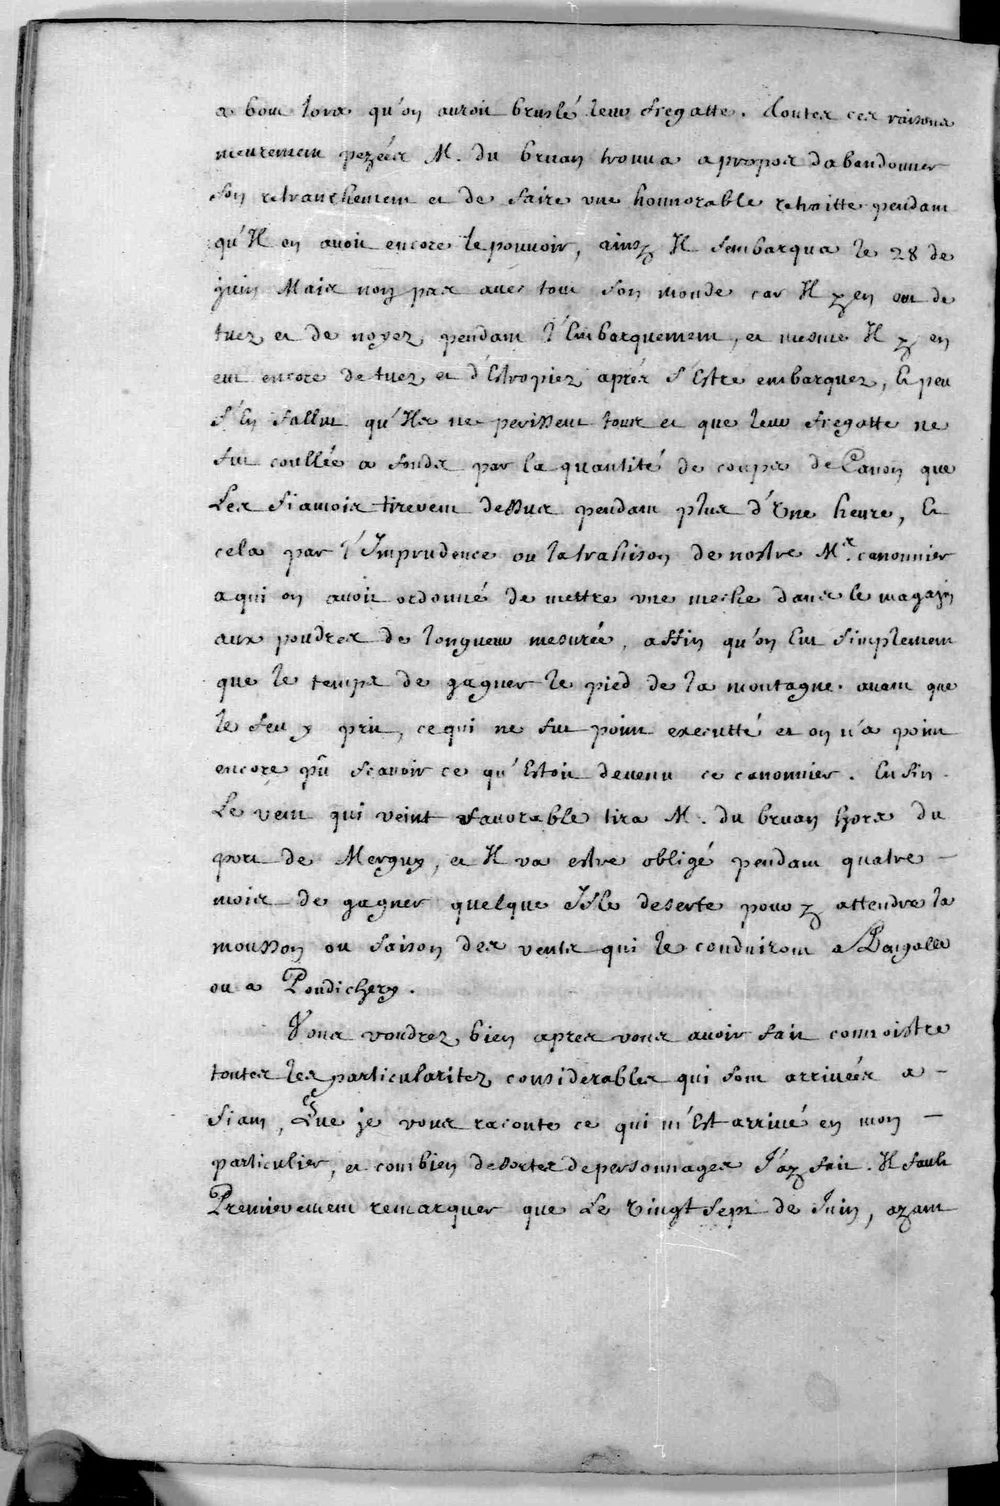 a bout lors qu'on auroit bruslé leur fregatte. Toutes ces raisons
meurement pezées M. du bruan trouua a propos dabandonner
son retranchement et de faire une honnorable retraitte pendant
qu'Il en auoit encore le pouuoir, ainsy Il sembarqua le 28 de
juin Mais non pas auec tout son monde car Il y en eut de
tuez et de noyez pendant l'Embarquement, et mesme Il y en
eut encore de tuez et d'Estropiez aprés s'Estre embarquez, Et peu
s'En fallut qu'Ils ne perissent tous et que leur fregatte ne
fut coullée a fonds par la quantité de coups de Canon que
Les siamois tirerent dessus pendant plus d'Une heure, Et
cela par l'Imprudence ou la trahison de nostre Mr. canonnier
a qui on auoit ordonné de mettre une meche dans le magazin
aux poudres de longueur mesurée, affin qu'on Eut simplement
que le temps de gagner le pied de la montagne auant que
le feu y prit, ce qui ne fut point executté et on n'a point
encore pû scauoir ce qu'Estoit devenu ce canonnier. Enfin
Le vent qui veint fauorable tira M. du bruan hors du
port de Merguy, et Il va estre obligé pendant quatre
mois de gagner quelque Isle deserte pour y attendre la
mousson ou saison des vents qui le conduiront a Bangalle
ou a Pondichery.
Vous voudrez bien apres vous auoir fait connoistre
toutes les particularitez considerables qui sont arriuées a
siam, Que je vous raconte ce qui m'Est arriué en mon
particulier, et combien de sortes de personnages J'ay fait. Il fault
Premierement remarquer que Le Vingt sept de Juin, ayant